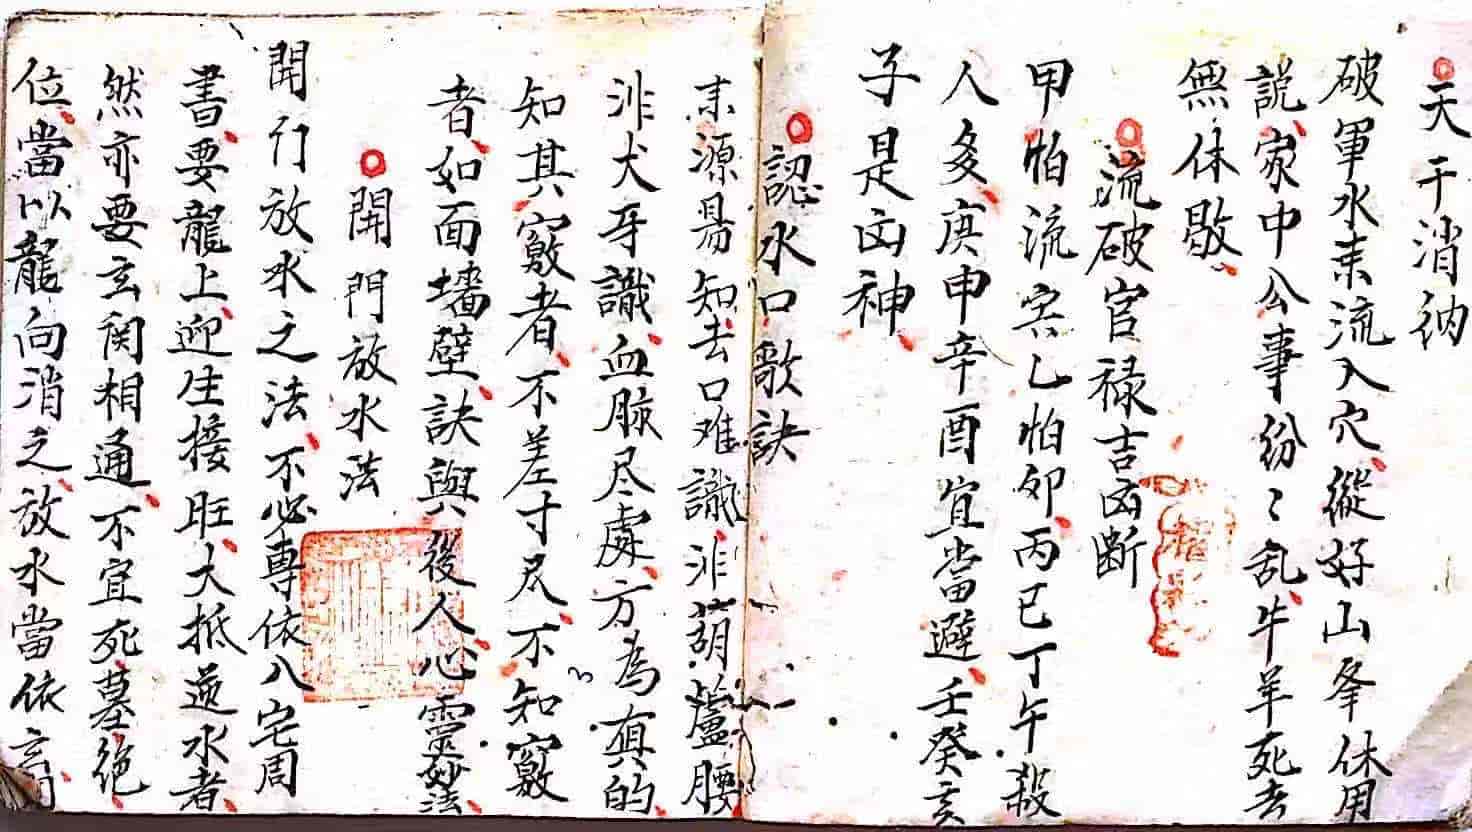 天干消納
破軍水来流入穴縱好山峯休用
説家中公事纷〻乱牛羊死去
無休歇
流破官禄吉凶断
甲怕流寅乙怕卯丙巳丁午殺
人多庚申辛酉宜當避壬癸亥
子是凶神
認水口歌訣
来源易知去口难識非葫蘆腰
非犬牙識血脉尽處方為真的
知其竅者不差寸尺不知竅
者如面墻壁訣與後人心靈妙法
開門放水法
開门放水之法不必專依八宅周
書要龍上迎生接旺大抵逆水者
然亦要玄関相通不宜死墓绝
位當以龍向消之放水當依玄